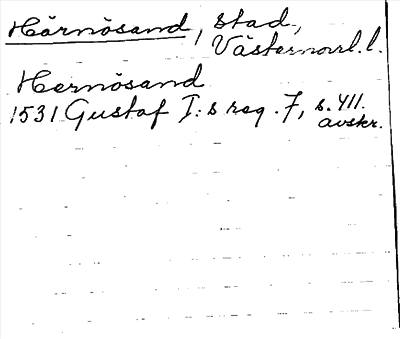 Härnösand, stad,
Västernorrl. l.
Hernösand
1531 Gustaf I:s reg. 7, s. 411.
avskr.